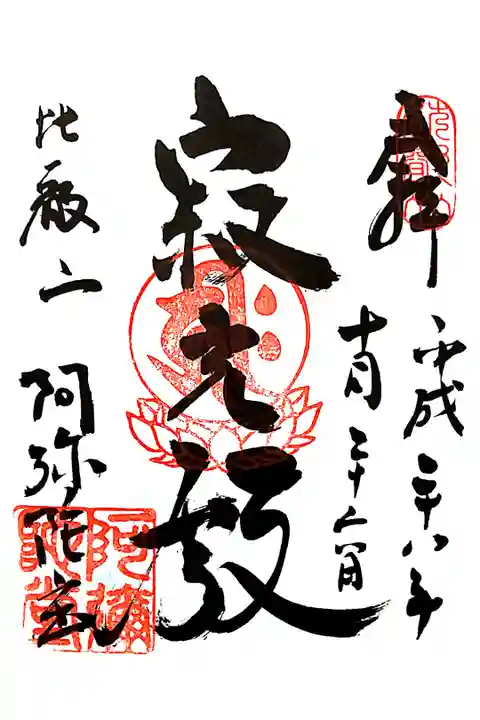 奉拝
平成二十八年
十月二十八日
寂光殿
比叡山 阿弥陀堂
阿彌陀堂